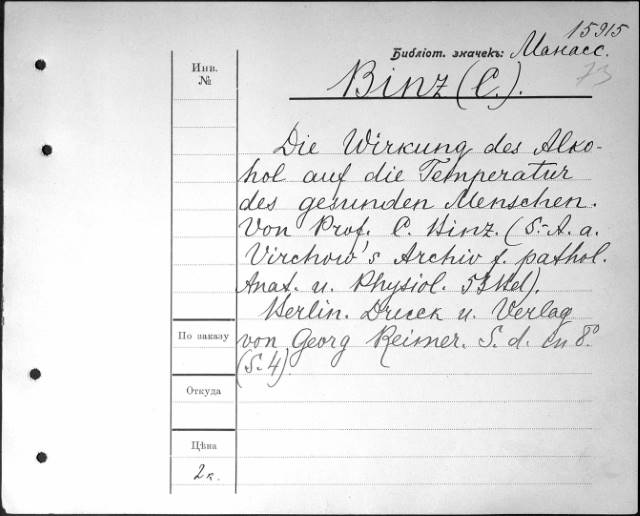 15915
Библіот. значекъ: Манасс.
73
Инв.
№
Binz (C.).
Die Wirkung des Alko-
hol auf die Temperatur
des gesunden Menschen.
Von Prof. C. Binz. (S.-A. a.
Virchow's Archiv f. pathol.
Anat. u. Physiol. 53 Bd).
Berlin. Druck u. Verlag
von Georg Reimer. S. d. in 8.°
(S. 4).
По заказу
Откуда
Цѣна
2 к.